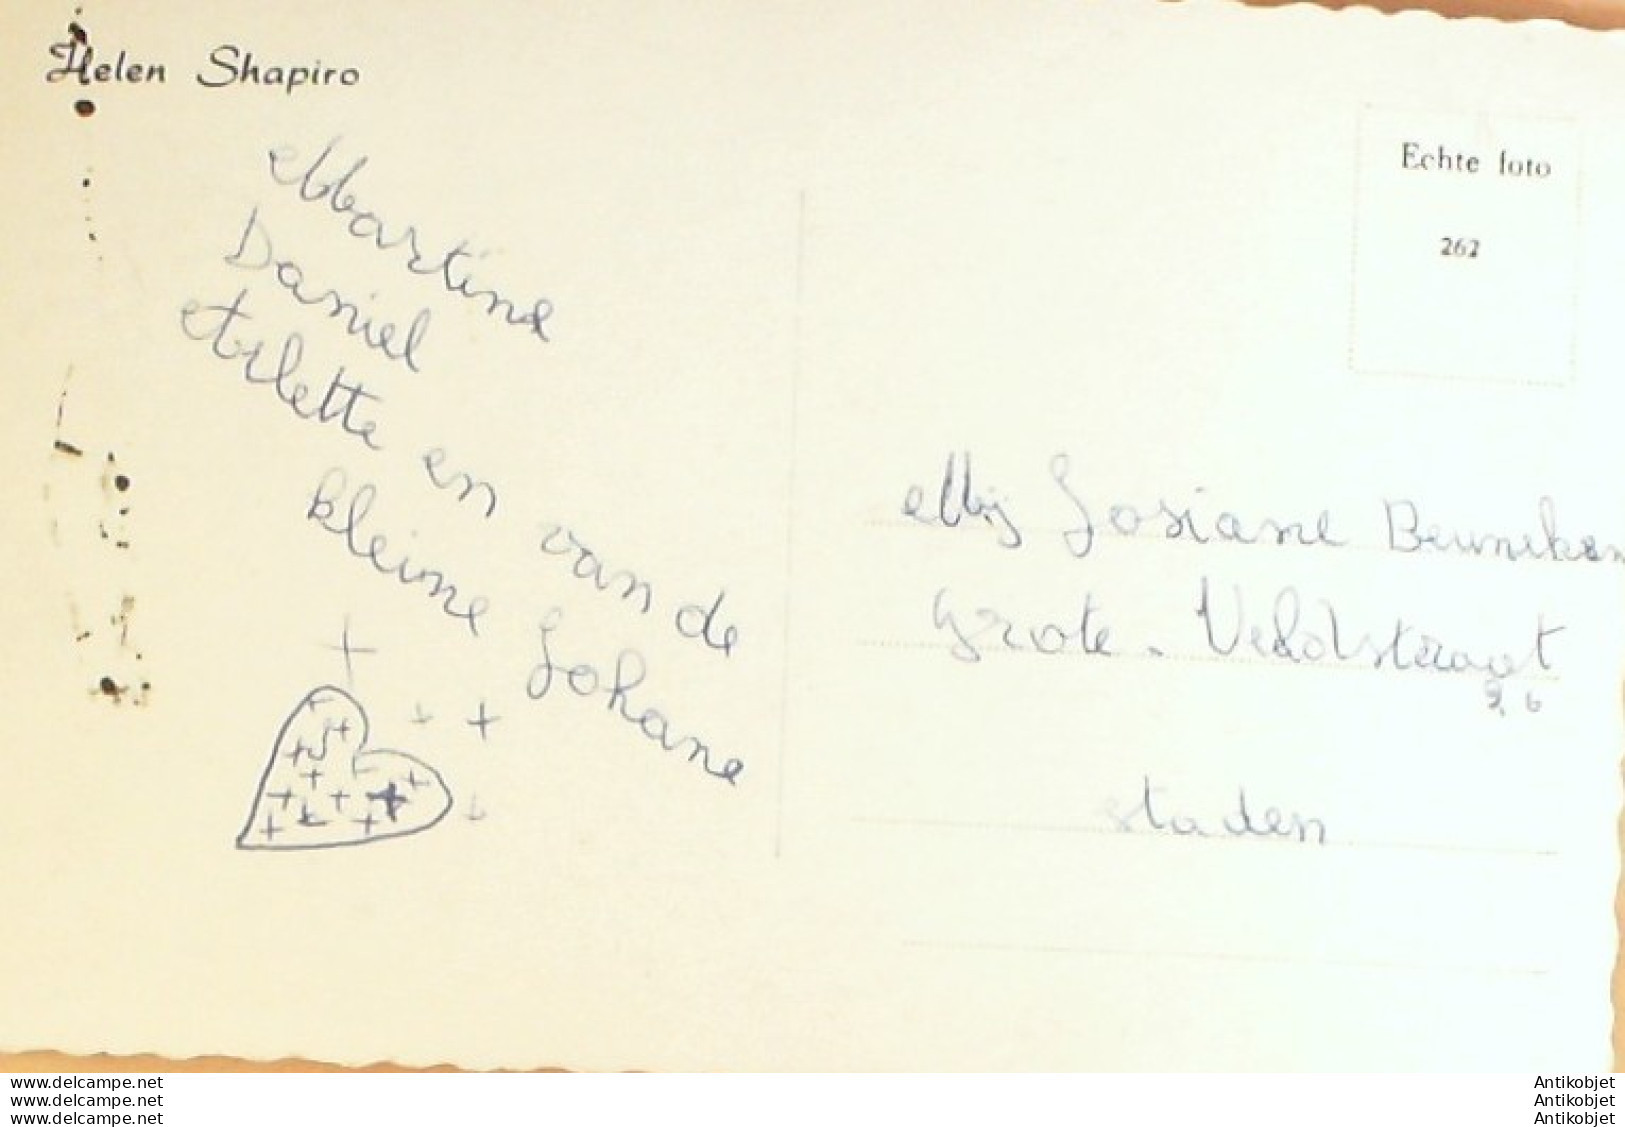 Helen Shapiro
Echte foto
262
Martine
Daniel
Arlette en van de
kleine Johane
Mij Josiane
Grote-Veldstraat
staden
www.delcampe.net
www.delcampe.net
www.delcampe.net
Antikobjet
Antikobjet
Antikobjet